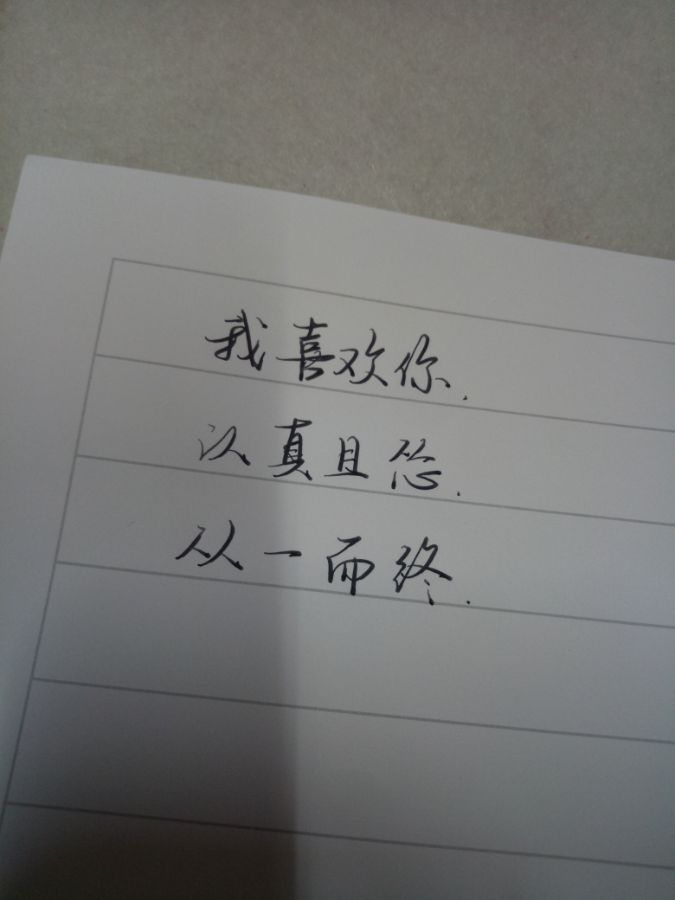 我喜欢你.
认真且怂.
从一而终.